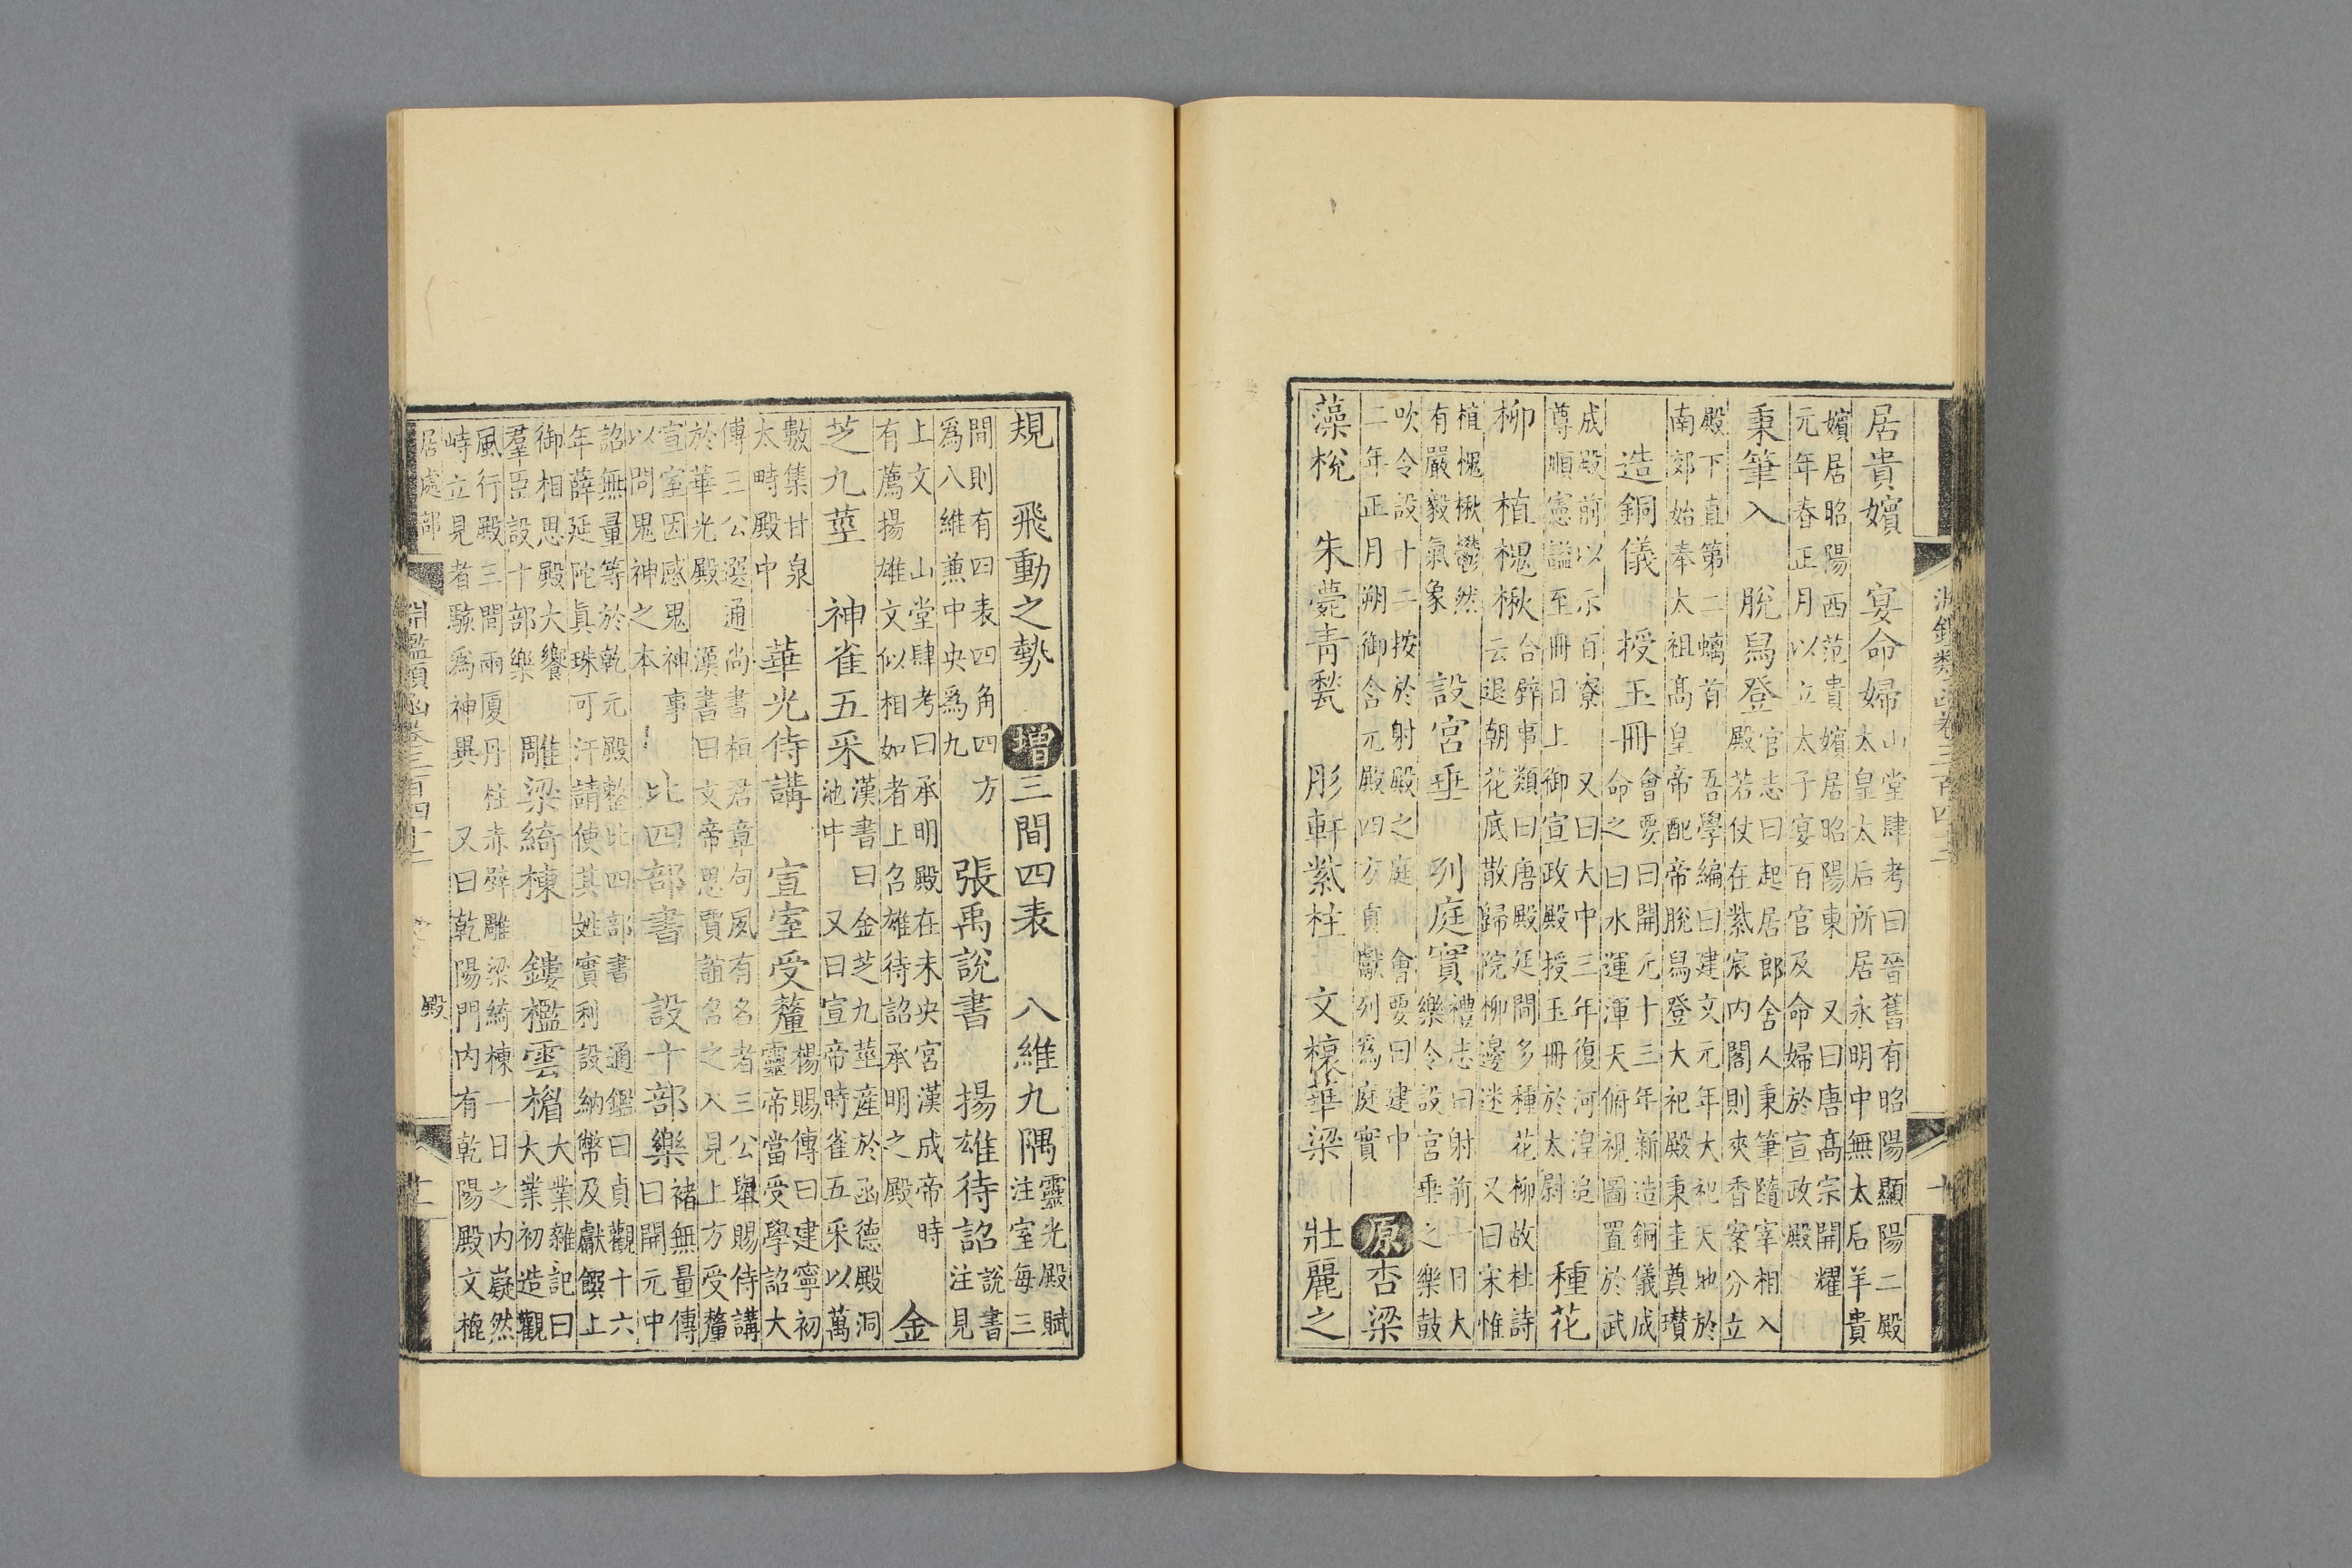 淵鑑類函卷三百四十二 十
居貴嬪 宴命婦 山堂肆考曰晉舊有昭陽顯陽二殿太皇太后所居永明中無太后羊貴
嬪居昭陽西范貴嬪居昭陽東 又曰唐高宗開耀元年春正月以立太子宴百官及命婦於宣政殿
秉筆入 脫舄登 官志曰起居郎舍人秉筆隨宰相入殿若仗在紫宸內閣則夾香案分立
殿下直第二螭首 吾學編曰建文元年大祀天地於南郊始奉太祖高皇帝配帝脫舄登大祀殿秉圭奠瓚
造銅儀 授玉冊 會要曰開元十三年新造銅儀成命之曰水運渾天俯視圖置於武
成殿前以示百寮 又曰大中三年復河湟追尊順憲諡至冊日上御宣政殿授玉冊於太尉 種花
柳 植槐楸 合璧事類曰唐殿廷間多種花柳故杜詩云退朝花底散歸院柳邊迷 又曰宋惟
植槐楸鬱然有嚴毅氣象 設宮垂 列庭實 禮志曰射前一日大樂令設宮垂之樂鼓
吹令設十二按於射殿之庭 會要曰建中二年正月朔御含元殿四方貢獻列為庭實 原 杏梁
藻梲 朱甍青甃 彤軒紫柱 文榱華梁 壯麗之
規 飛動之勢 增 三間四表 八維九隅 靈光殿賦注室每三
間則有四表四角四方為八維兼中央為九 張禹說書 揚雄待詔 說書注見
上文 山堂肆考曰承明殿在未央宮漢成帝時有薦揚雄文似相如者上召雄待詔承明之殿 金
芝九莖 神雀五采 漢書曰金芝九莖產於函德殿洞池中 又曰宣帝時雀五采以萬
數集甘泉太畤殿中 華光侍講 宣室受釐 楊賜傳曰建寧初靈帝當受學詔大
傅三公選通尚書桓君章句夙有名者三公舉賜侍講於華光殿 漢書曰文帝思賈誼召之入見上方受釐
宣室因感鬼神事以問鬼神之本 比四部書 設十部樂 褚無量傳曰開元中
詔無量等於乾元殿整比四部書 通鑑曰貞觀十六年薛延陀真珠可汗請使其姪實利設納幣及獻饌上
御相思殿大饗羣臣設十部樂 雕梁綺棟 鏤檻雲楣 大業雜記曰大業初造觀
風行殿三間兩廈丹柱赤壁雕梁綺棟一日之內嶷然峙立見者駭為神異 又曰乾陽門內有乾陽殿文棍
居處部 淵鑑類函卷三百四十二 殿 十一